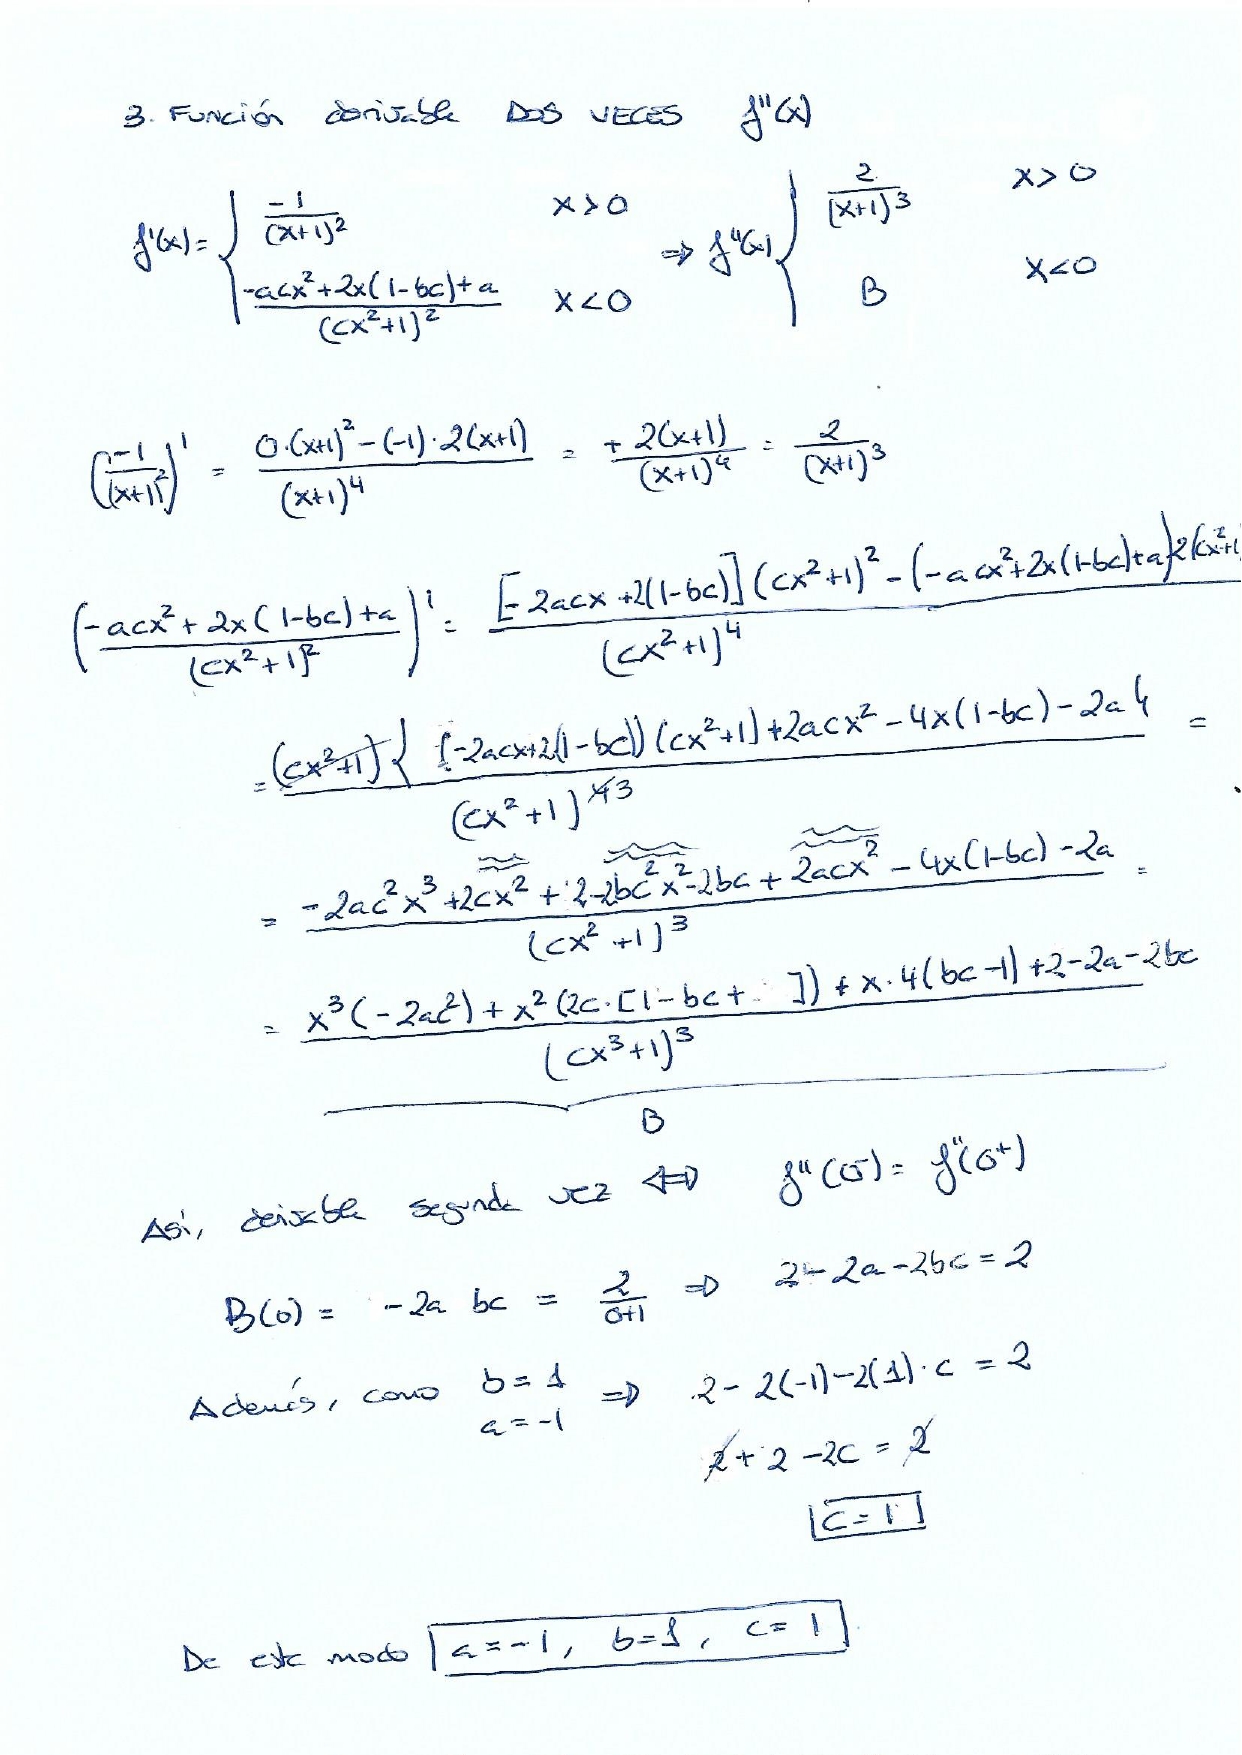 3. Función derivable DOS VECES f''(x)
f'(x) = { -1/(x+1)² x>0 ⇒ f''(x) { 2/(x+1)³ x>0
(-acx²+2x(1-bc)+a)/(cx²+1)² x<0 B x<0
(-1/(x+1)²)' = (0·(x+1)² - (-1)·2(x+1))/(x+1)⁴ = +2(x+1)/(x+1)⁴ = 2/(x+1)³
((-acx²+2x(1-bc)+a)/(cx²+1)²)' = ([-2acx+2(1-bc)](cx²+1)² - (-acx²+2x(1-bc)+a)2(cx²+1
= (cx²+1){[-2acx+2(1-bc)](cx²+1)+2acx²-4x(1-bc)-2a}/(cx²+1)⁴³ =
= (-2ac²x³+2cx²+2-2bc²x²-2bc+2acx²-4x(1-bc)-2a)/(cx²+1)³ =
= (x³(-2ac²)+x²(2c·[1-bc+ ])+x·4(bc-1)+2-2a-2bc)/(cx³+1)³
B
Así, derivable segunda vez ⇔ f''(0⁻) = f''(0⁺)
B(0) = -2a bc = 2/(0+1) ⇒ 2-2a-2bc = 2
Además, como b=1 a=-1 ⇒ 2-2(-1)-2(1)·c = 2
2+2-2c = 2
c=1
De este modo a=-1, b=1, c=1